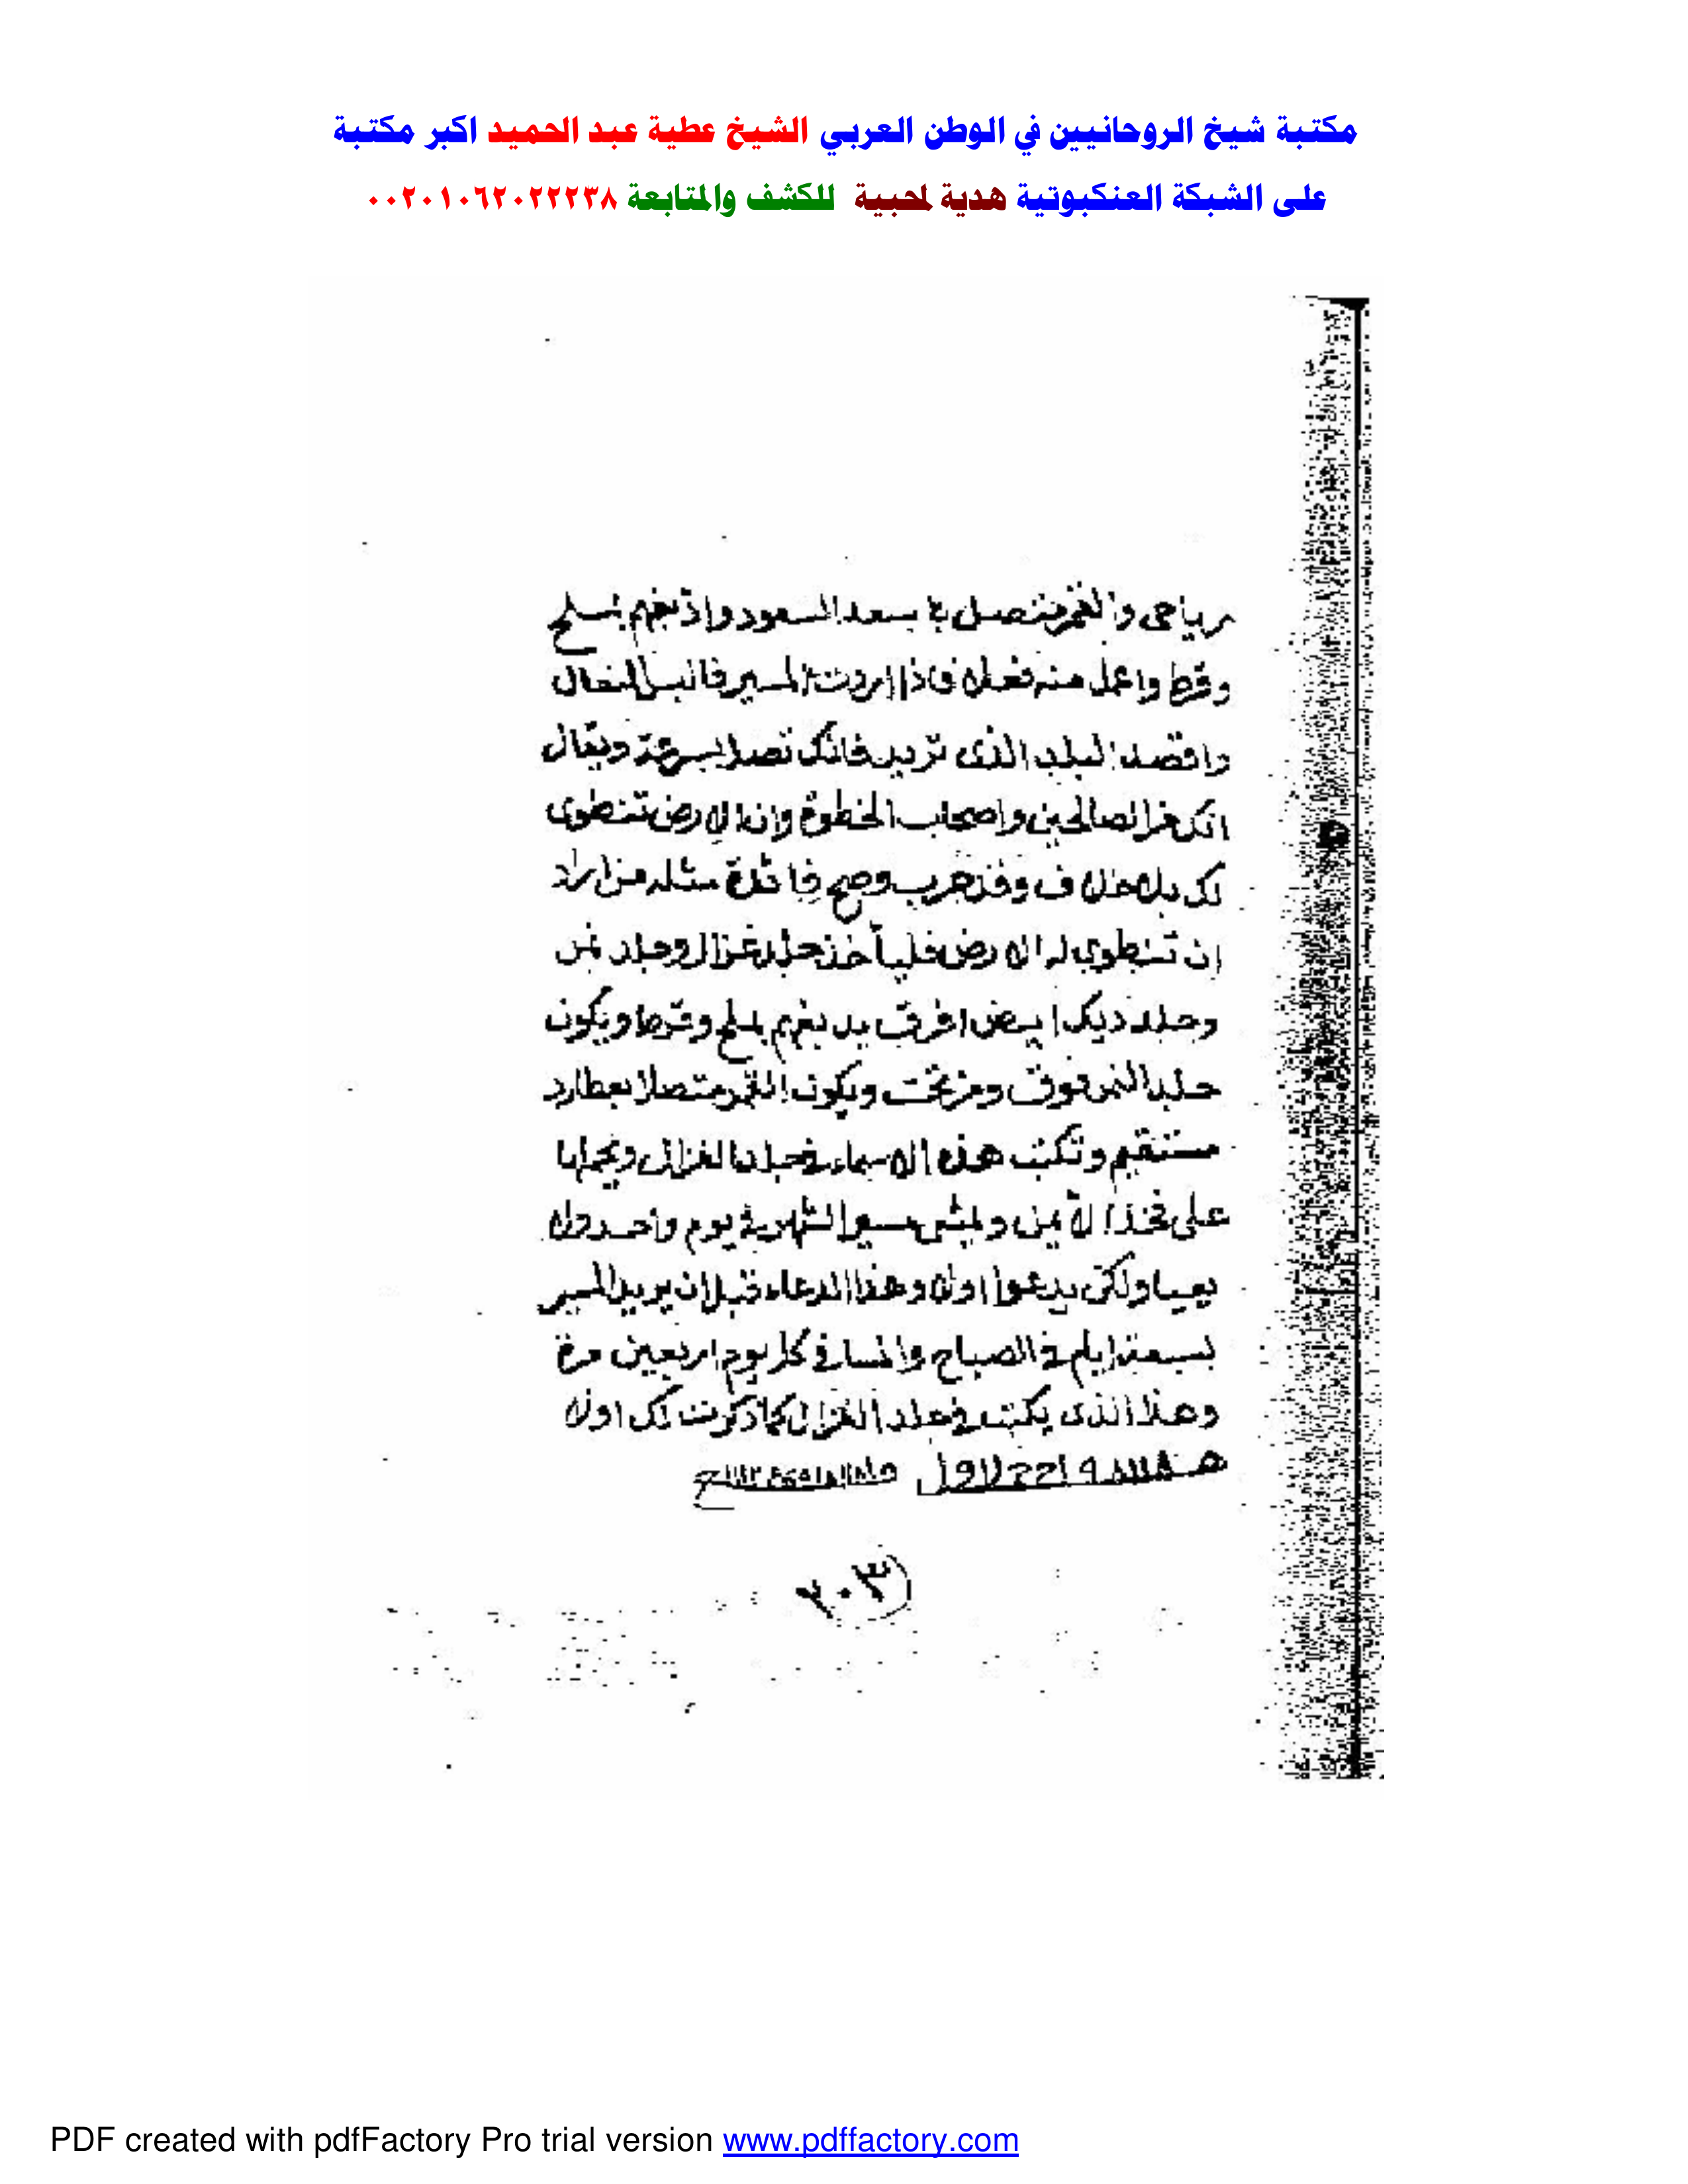 مكتبة شيخ الروحانيين في الوطن العربي الشيخ عطية عبد الحميد اكبر مكتبة
على الشبكة العنكبوتية هدية لمحبية للكشف والمتابعة ٠٠٢٠١٠٦٢٠٢٢٢٣٨
رياحى والقمر متصل بسعد السعود واذ بغهم بملح
وقرط واعمل منه نعلا فاذا اردت المسير فالبس النعال
واقصد البلد الذى تريد فانك تصل بسرعة ويقال
انك من الصالحين واصحاب الخطوة وان الارض تنطوى
لك بلا خلاف وقد جرب وصح فائدة مثله من اراد
ان تنطوى له الارض فليأخذ جلد غزال وجلد نمر
وجلد ديك ابيض افرق يدبغهم بملح وقرط ويكون
جلد النمر فوق ومن تحت ويكون القمر متصلا بعطارد
مستقيم وتكتب هذه الاسماء فى جلد الغزال ويحملها
على فخذه الأيمن ويمشى مسير الشهر فى يوم واحد ولا
يعيا ولكن يدعوا اولا وهذا الدعاء قبل ان يريد المسير
بسبعة ايام فى الصباح والمسا فى كل يوم اربعين مرة
وهذا الذى يكتب فى جلد الغزال كما ذكرت لك اولا
٣٠٣
PDF created with pdfFactory Pro trial version www.pdffactory.com